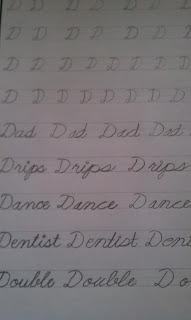 D D D D D D
D D D D D D D
D D D D D D D D
D D D D D D D D
Dad Dad Dad Dad
Drips Drips Drips
Dance Dance Dance
Dentist Dentist Dent
Double Double Do